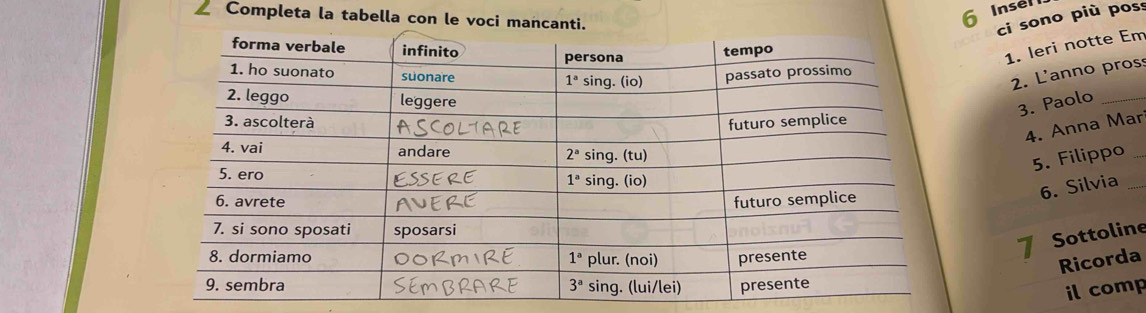 2 Completa la tabella con le voci mancanti.
forma verbale infinito persona tempo
1. ho suonato suonare 1ª sing. (io) passato prossimo
2. leggo leggere
3. ascolterà ASCOLTARE futuro semplice
4. vai andare 2ª sing. (tu)
5. ero ESSERE 1ª sing. (io)
6. avrete AVERE futuro semplice
7. si sono sposati sposarsi
8. dormiamo DORMIRE 1ª plur. (noi) presente
9. sembra SEMBRARE 3ª sing. (lui/lei) presente
6
ci sono più poss
1. Ieri notte Em
2. L'anno pross
3. Paolo
4. Anna Mar
5. Filippo
6. Silvia
7 Sottoline
Ricorda
il comp